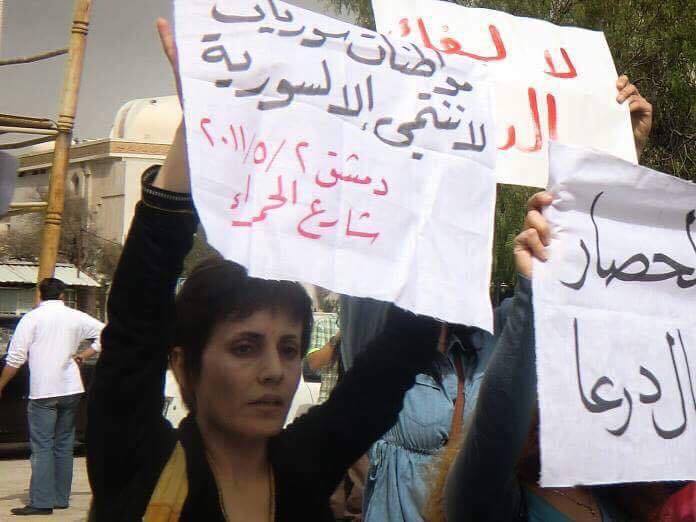 مواطنات سوريات
لا ننتمي إلا لسورية
دمشق ٢/٥/٢٠١١
شارع الحمراء
لا لبقاء
الحصار
ال درعا